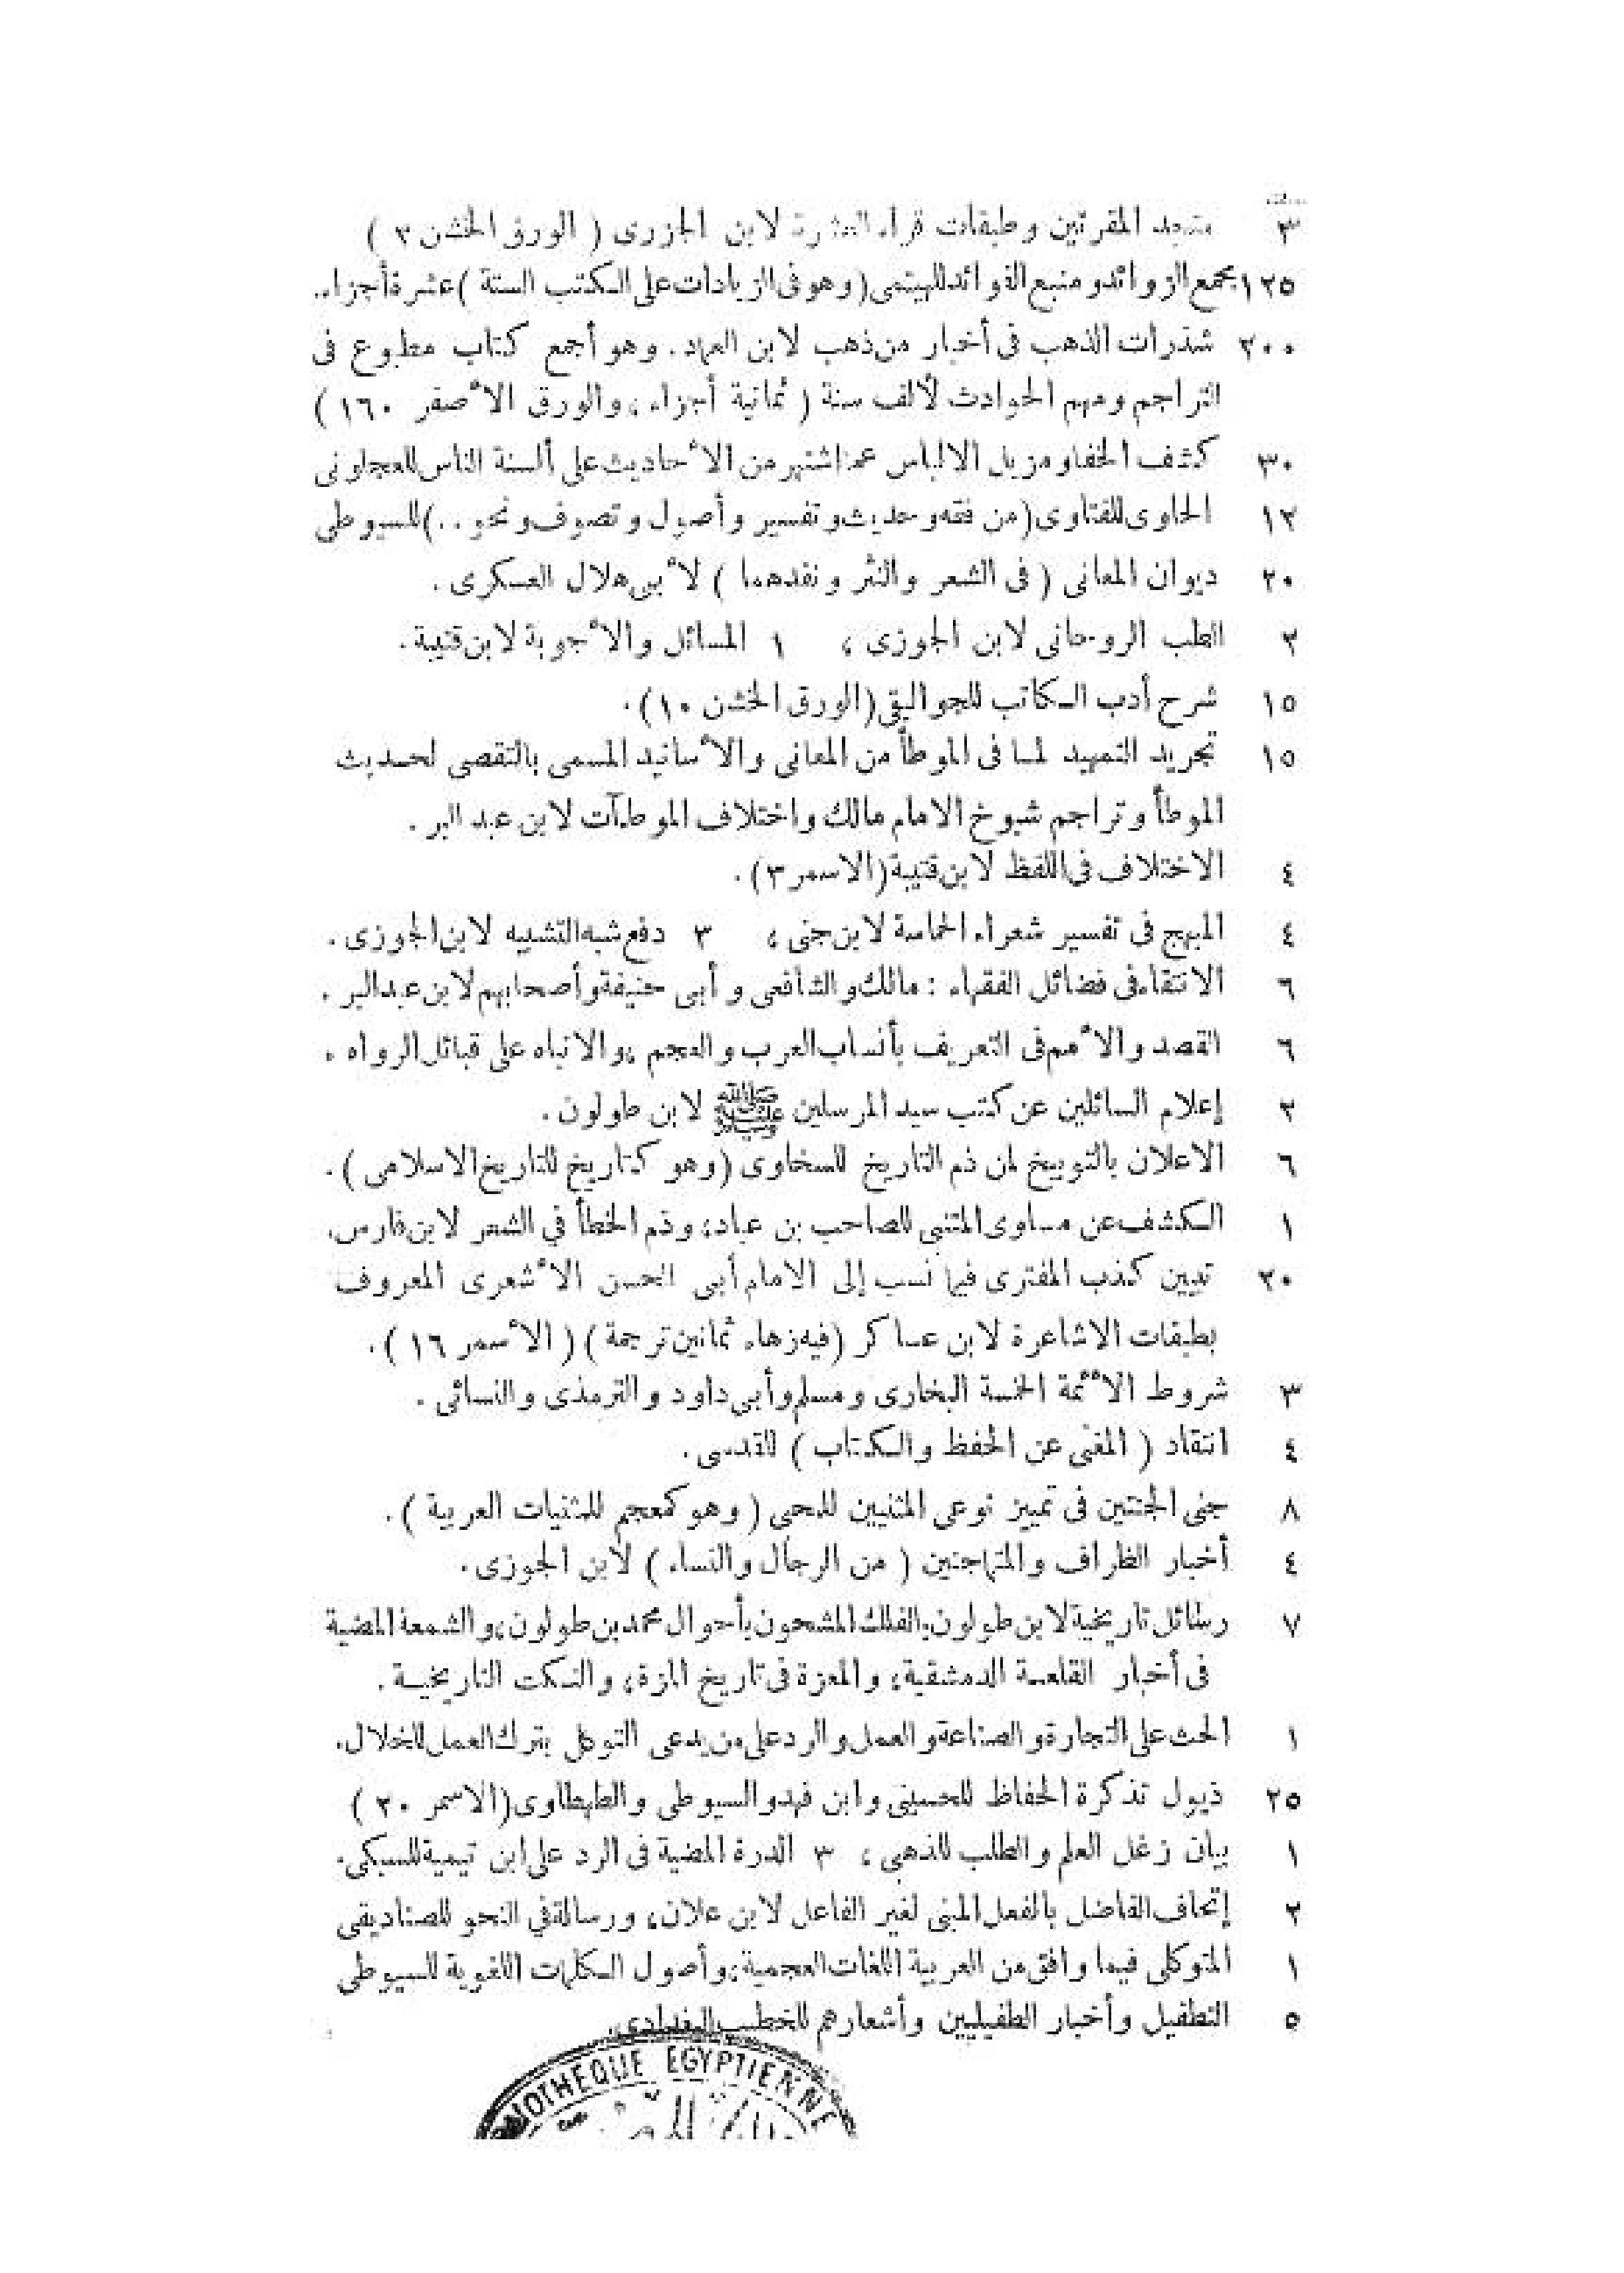 ٣ منجد المقرئين وطبقات قراء العشرة لابن الجزرى ( الورق الخشن ٢ )
١٢٥ مجمع الزوائد ومنبع الفوائد للهيثمى ( وهو فى الزيادات على الكتب الستة ) عشرة أجزاء.
٢٠٠ شذرات الذهب فى أخبار من ذهب لابن العماد . وهو أجمع كتاب مطبوع فى
التراجم ومهم الحوادث لألف سنة ( ثمانية أجزاء ، والورق الأصفر ١٦٠ )
٣٠ كشف الخفا ومزيل الالباس عما اشتهر من الأحاديث على ألسنة الناس للعجلونى
١٢ الحاوى للفتاوى ( من فقه وحديث وتفسير وأصول وتصوف ونحو . . ) للسيوطى
٢٠ ديوان المعانى ( فى الشعر والنثر ونقدهما ) لأبى هلال العسكرى .
٢ الطب الروحانى لابن الجوزى ، ١ المسائل والأجوبة لابن قتيبة .
١٥ شرح أدب الكاتب للجواليقى ( الورق الخشن ١٠ ) .
١٥ تجريد التمهيد لما فى الموطأ من المعانى والأسانيد المسمى بالتقصى لحديث
الموطأ وتراجم شيوخ الامام مالك واختلاف الموطآت لابن عبد البر .
٤ الاختلاف فى اللفظ لابن قتيبة ( الاسمر ٣ ) .
٤ المبهج فى تفسير شعراء الحماسة لابن جنى ، ٣ دفع شبه التشبيه لابن الجوزى .
٦ الانتقاء فى فضائل الفقهاء : مالك والشافعى وأبى حنيفة وأصحابهم لابن عبد البر .
٦ القصد والأمم فى التعريف بأنساب العرب والعجم ، والانباه على قبائل الرواه .
٢ إعلام السائلين عن كتب سيد المرسلين ﷺ لابن طولون .
٦ الاعلان بالتوبيخ لمن ذم التاريخ للسخاوى ( وهو كتاريخ للتاريخ الاسلامى ) .
١ الكشف عن مساوى المتنبى للصاحب بن عباد ، وذم الخطأ في الشعر لابن فارس .
٢٠ تبيين كذب المفترى فيما نسب إلى الامام أبى الحسن الأشعرى المعروف
بطبقات الاشاعرة لابن عساكر ( فيه زهاء ثمانين ترجمة ) ( الأسمر ١٦ ) .
٣ شروط الأئمة الخمسة البخارى ومسلم وأبى داود والترمذى والنسائى .
٤ انتقاد ( المغنى عن الحفظ والكتاب ) للقدسى .
٨ جنى الجنتين فى تمييز نوعى المثنيين للمحبى ( وهو كمعجم للمثنيات العربية ) .
٤ أخبار الظراف والمتماجنين ( من الرجال والنساء ) لابن الجوزى .
٧ رسائل تاريخية لابن طولون : الفلك المشحون بأحوال محمد بن طولون ، والشمعة المضية
فى أخبار القلعة الدمشقية ، والمعزة فى تاريخ المزة ، والنكت التاريخية .
١ الحث على التجارة والصناعة والعمل والرد على من يدعى التوكل بترك العمل للخلال .
٢٥ ذيول تذكرة الحفاظ للحسينى وابن فهد والسيوطى والطهطاوى ( الاسمر ٢٠ )
١ بيان زغل العلم والطلب للذهبى ، ٣ الدرة المضية فى الرد على ابن تيمية للسبكى .
٢ إتحاف الفاضل بالفعل المبنى لغير الفاعل لابن علان ، ورسالة في النحو للصناديقى
١ المتوكلى فيما وافق من العربية اللغات العجمية ، وأصول الكلمات اللغوية للسيوطى
٥ التطفيل وأخبار الطفيليين وأشعارهم للخطيب البغدادى .
EGYPTIENNE